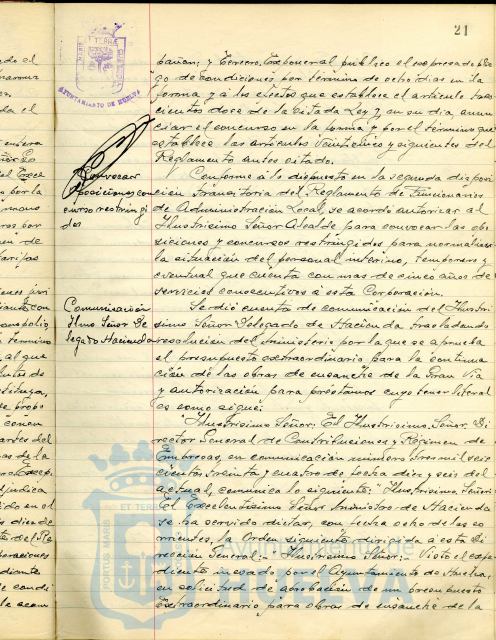 21
AYUNTAMIENTO DE HUELVA
pañan; y Tercero. Exponer al público el expresado plie
go de condiciones por término de ocho días en la
forma y a los efectos que establece el artículo tres
cientos doce de la citada Ley y, en su día, anun
ciar el concurso en la forma y por el término que
establece los artículos Veinticinco y siguientes del
Reglamento antes citado.
Convocar
oposiciones con
curso restringi
dos
Conforme a lo dispuesto en la segunda disposi
ción transitoria del Reglamento de Funcionarios
de Administración Local, se acordó autorizar al
Ilustrísimo Señor Alcalde para convocar las opo
siciones y concursos restringidos para normalizar
la situación del personal interino, temporero y
eventual que cuenta con mas de cinco años de
servicios consecutivos a esta Corporación.
Comunicación
Ilmo Señor De
legado Hacienda
Se dió cuenta de comunicación del Ilustrí
simo Señor Delegado de Hacienda trasladando
resolución del Ministerio por la que se aprueba
el presupuesto extraordinario para la continua
ción de las obras de ensanche de la Gran Vía
y autorización para préstamos cuyo tenor literal
es como sigue:
"Ilustrísimo Señor: El Ilustrísimo Señor Di
rector General de Contribuciones y Régimen de
Empresas, en comunicación número tres mil seis
cientos treinta y cuatro de fecha diez y seis del
actual, comunica lo siguiente: "Ilustrísimo Señor:
El Excelentísimo Señor Ministro de Hacienda
se ha servido dictar, con fecha ocho de los co
rrientes, la Orden siguiente dirigida a esta Di
rección General:- Ilustrísimo Señor:- Visto el expe
diente incoado por el Ayuntamiento de Huelva,
en solicitud de aprobación de un presupuesto
extraordinario para obras de ensanche de la
PORTUS MARIS
ET TERRAE
HUELVA